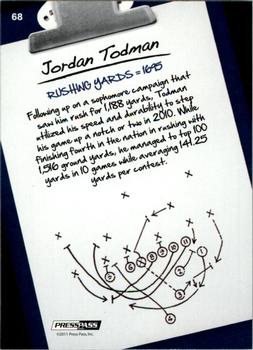 68
Jordan Todman
RUSHING YARDS = 1695
Following up on a sophomore campaign that
saw him rush for 1,188 yards, Todman
utilized his speed and durability to step
his game up a notch or two in 2010. While
finishing fourth in the nation in rushing with
1,516 ground yards, he managed to top 100
yards in 10 games while averaging 141.25
yards per contest.
PRESS PASS
©2011 Press Pass, Inc.